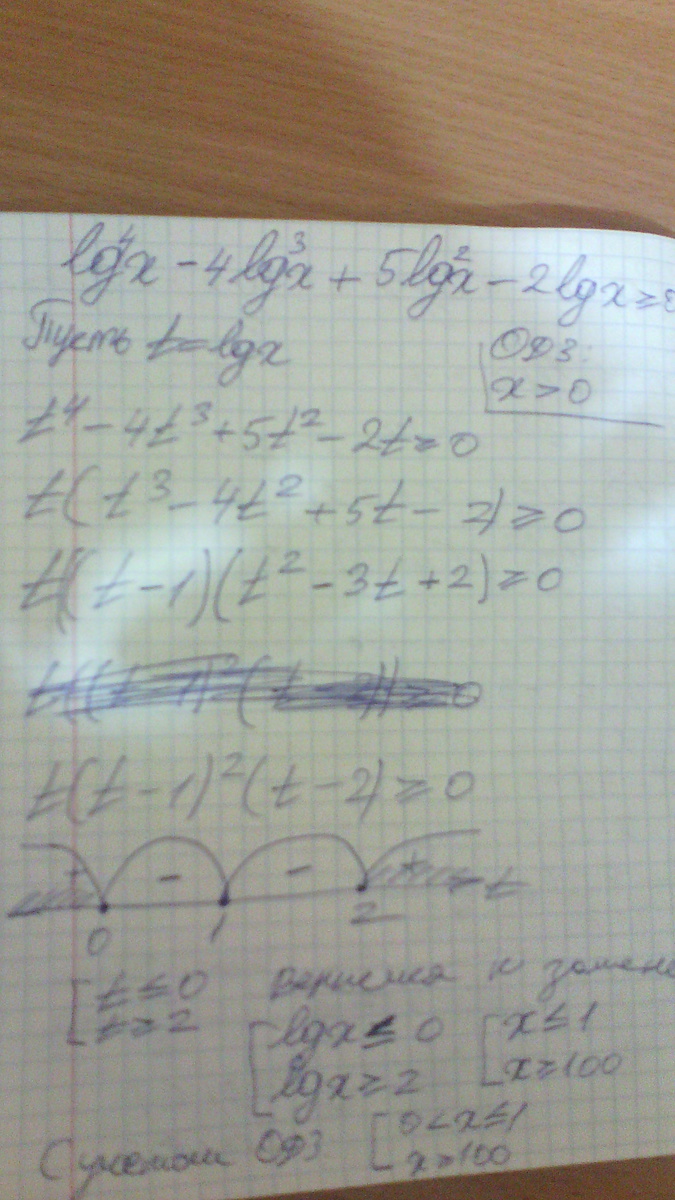 lg⁴x - 4lg³x + 5lg²x - 2lgx ≥ 0
Пусть t = lgx
ОДЗ:
x > 0
t⁴ - 4t³ + 5t² - 2t ≥ 0
t(t³ - 4t² + 5t - 2) ≥ 0
t(t - 1)(t² - 3t + 2) ≥ 0
t(t - 1)²(t - 2) ≥ 0
+ - - + t
0 1 2
[ t ≤ 0 Вернемся к замене
t ≥ 2
[ lgx ≤ 0 [ x ≤ 1
lgx ≥ 2 x ≥ 100
С учетом ОДЗ [ 0 < x ≤ 1
x ≥ 100